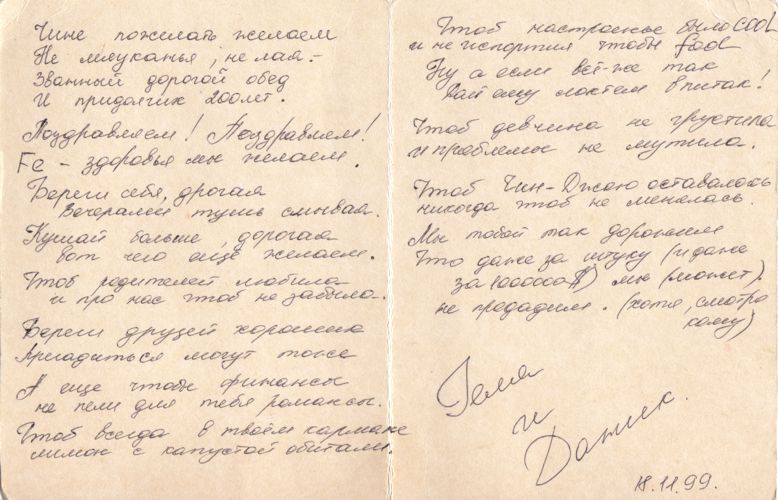 Чине пожелать желаем
Не мяуканья, не лая –
Званный дорогой обед
И придачик 200 лет.
Поздравляем! Поздравляем!
Fe – здоровья мы желаем.
Береги себя, дрогая
Вечерамей тушь смывая.
Кушай больше, дорогая
вот чего ещё желаем.
Чтоб родителей любила
и про нас чтоб не забыла.
Береги друзей хорошенько
пригодиться могут тоже
А еще чтобы финансы
не пели для тебя романсы.
Чтоб всегда в твоём кармане
лимон с капустой обитали.
Чтоб настроенье было COOL
и не испортил чтобы fool
Ну а если всё-же так
Дай ему локтем в пятак!
Чтоб девчина не грустила
и проблемы не мутила.
Чтоб Чин-Джаю оставалась
никогда чтоб не менялась.
Мы тобой так дорожим
Что даже за штуку (и даже
за 1000000$) мы (может)
не продадим. (хотя, смотря
кому)
Гема
и
Датик.
18.11.99.